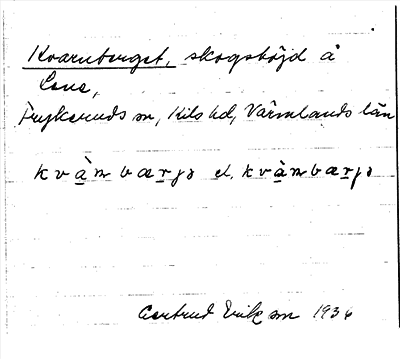 Kvarnberget, skogshöjd å
Lene,
Frykeruds sn, Kils hd, Värmlands län
kvàm bærjə el. kvàmbærjə
Gertrud Erikson 1936